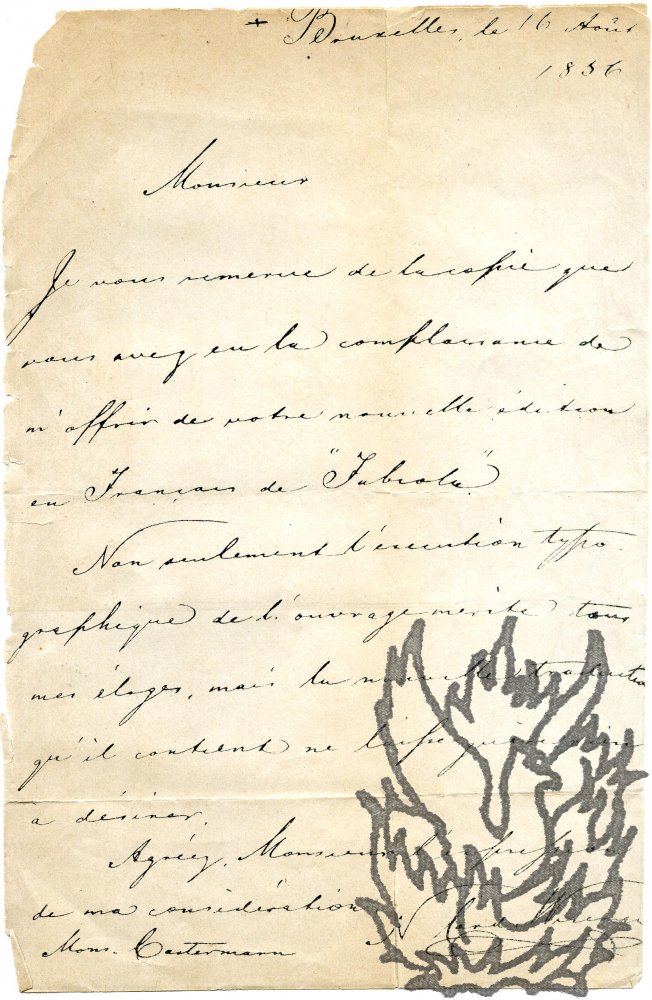 + Bruxelles, le 16 Août
1856
Monsieur
Je vous remercie de la copie que
vous avez eu la complaisance de
m'offrir de votre nouvelle édition
en Français de "Fabiola".
Non seulement l'execution typo-
graphique de l'ouvrage mérite tous
mes éloges, mais la nouvelle traduction
qu'il contient ne laisse
a désirer.
Agréez, Monsieur, l'expression
de ma considération
N. Card. Wiseman
Mons. Castermann